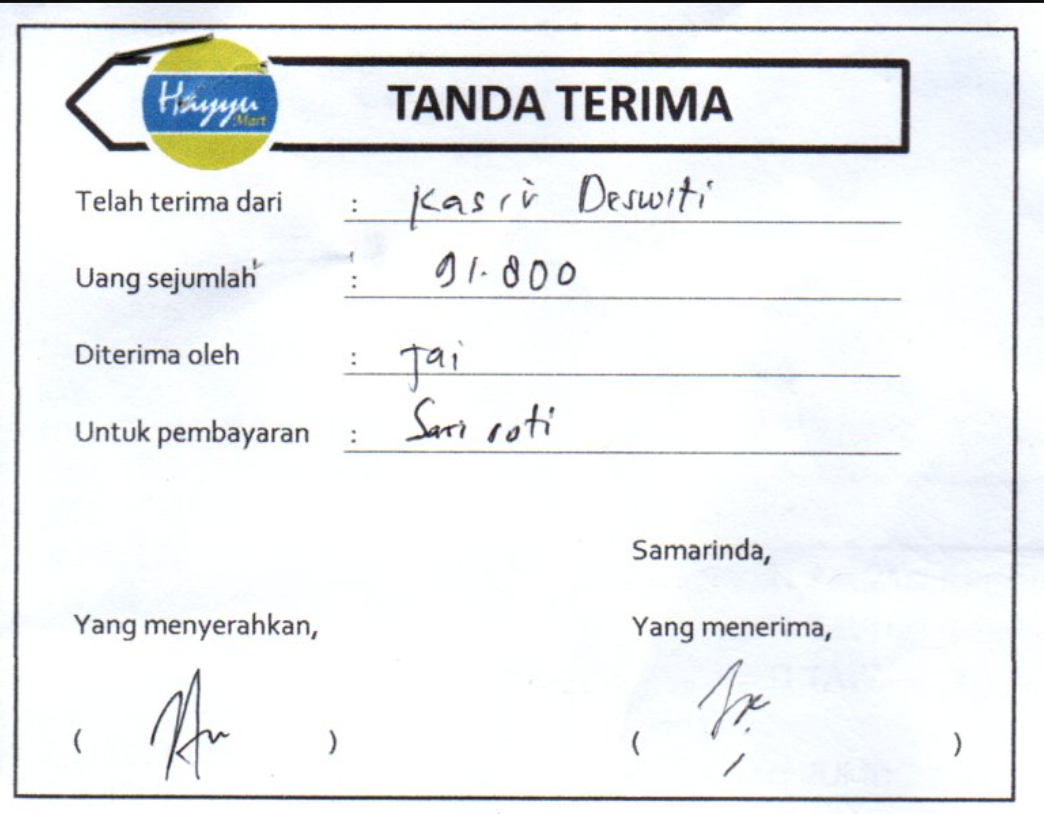 Hayyu
Mart
TANDA TERIMA
Telah terima dari : Kasir Deswiti
Uang sejumlah : 91.800
Diterima oleh : Jai
Untuk pembayaran : Sari roti
Samarinda,
Yang menyerahkan,
Yang menerima,
( )
( )